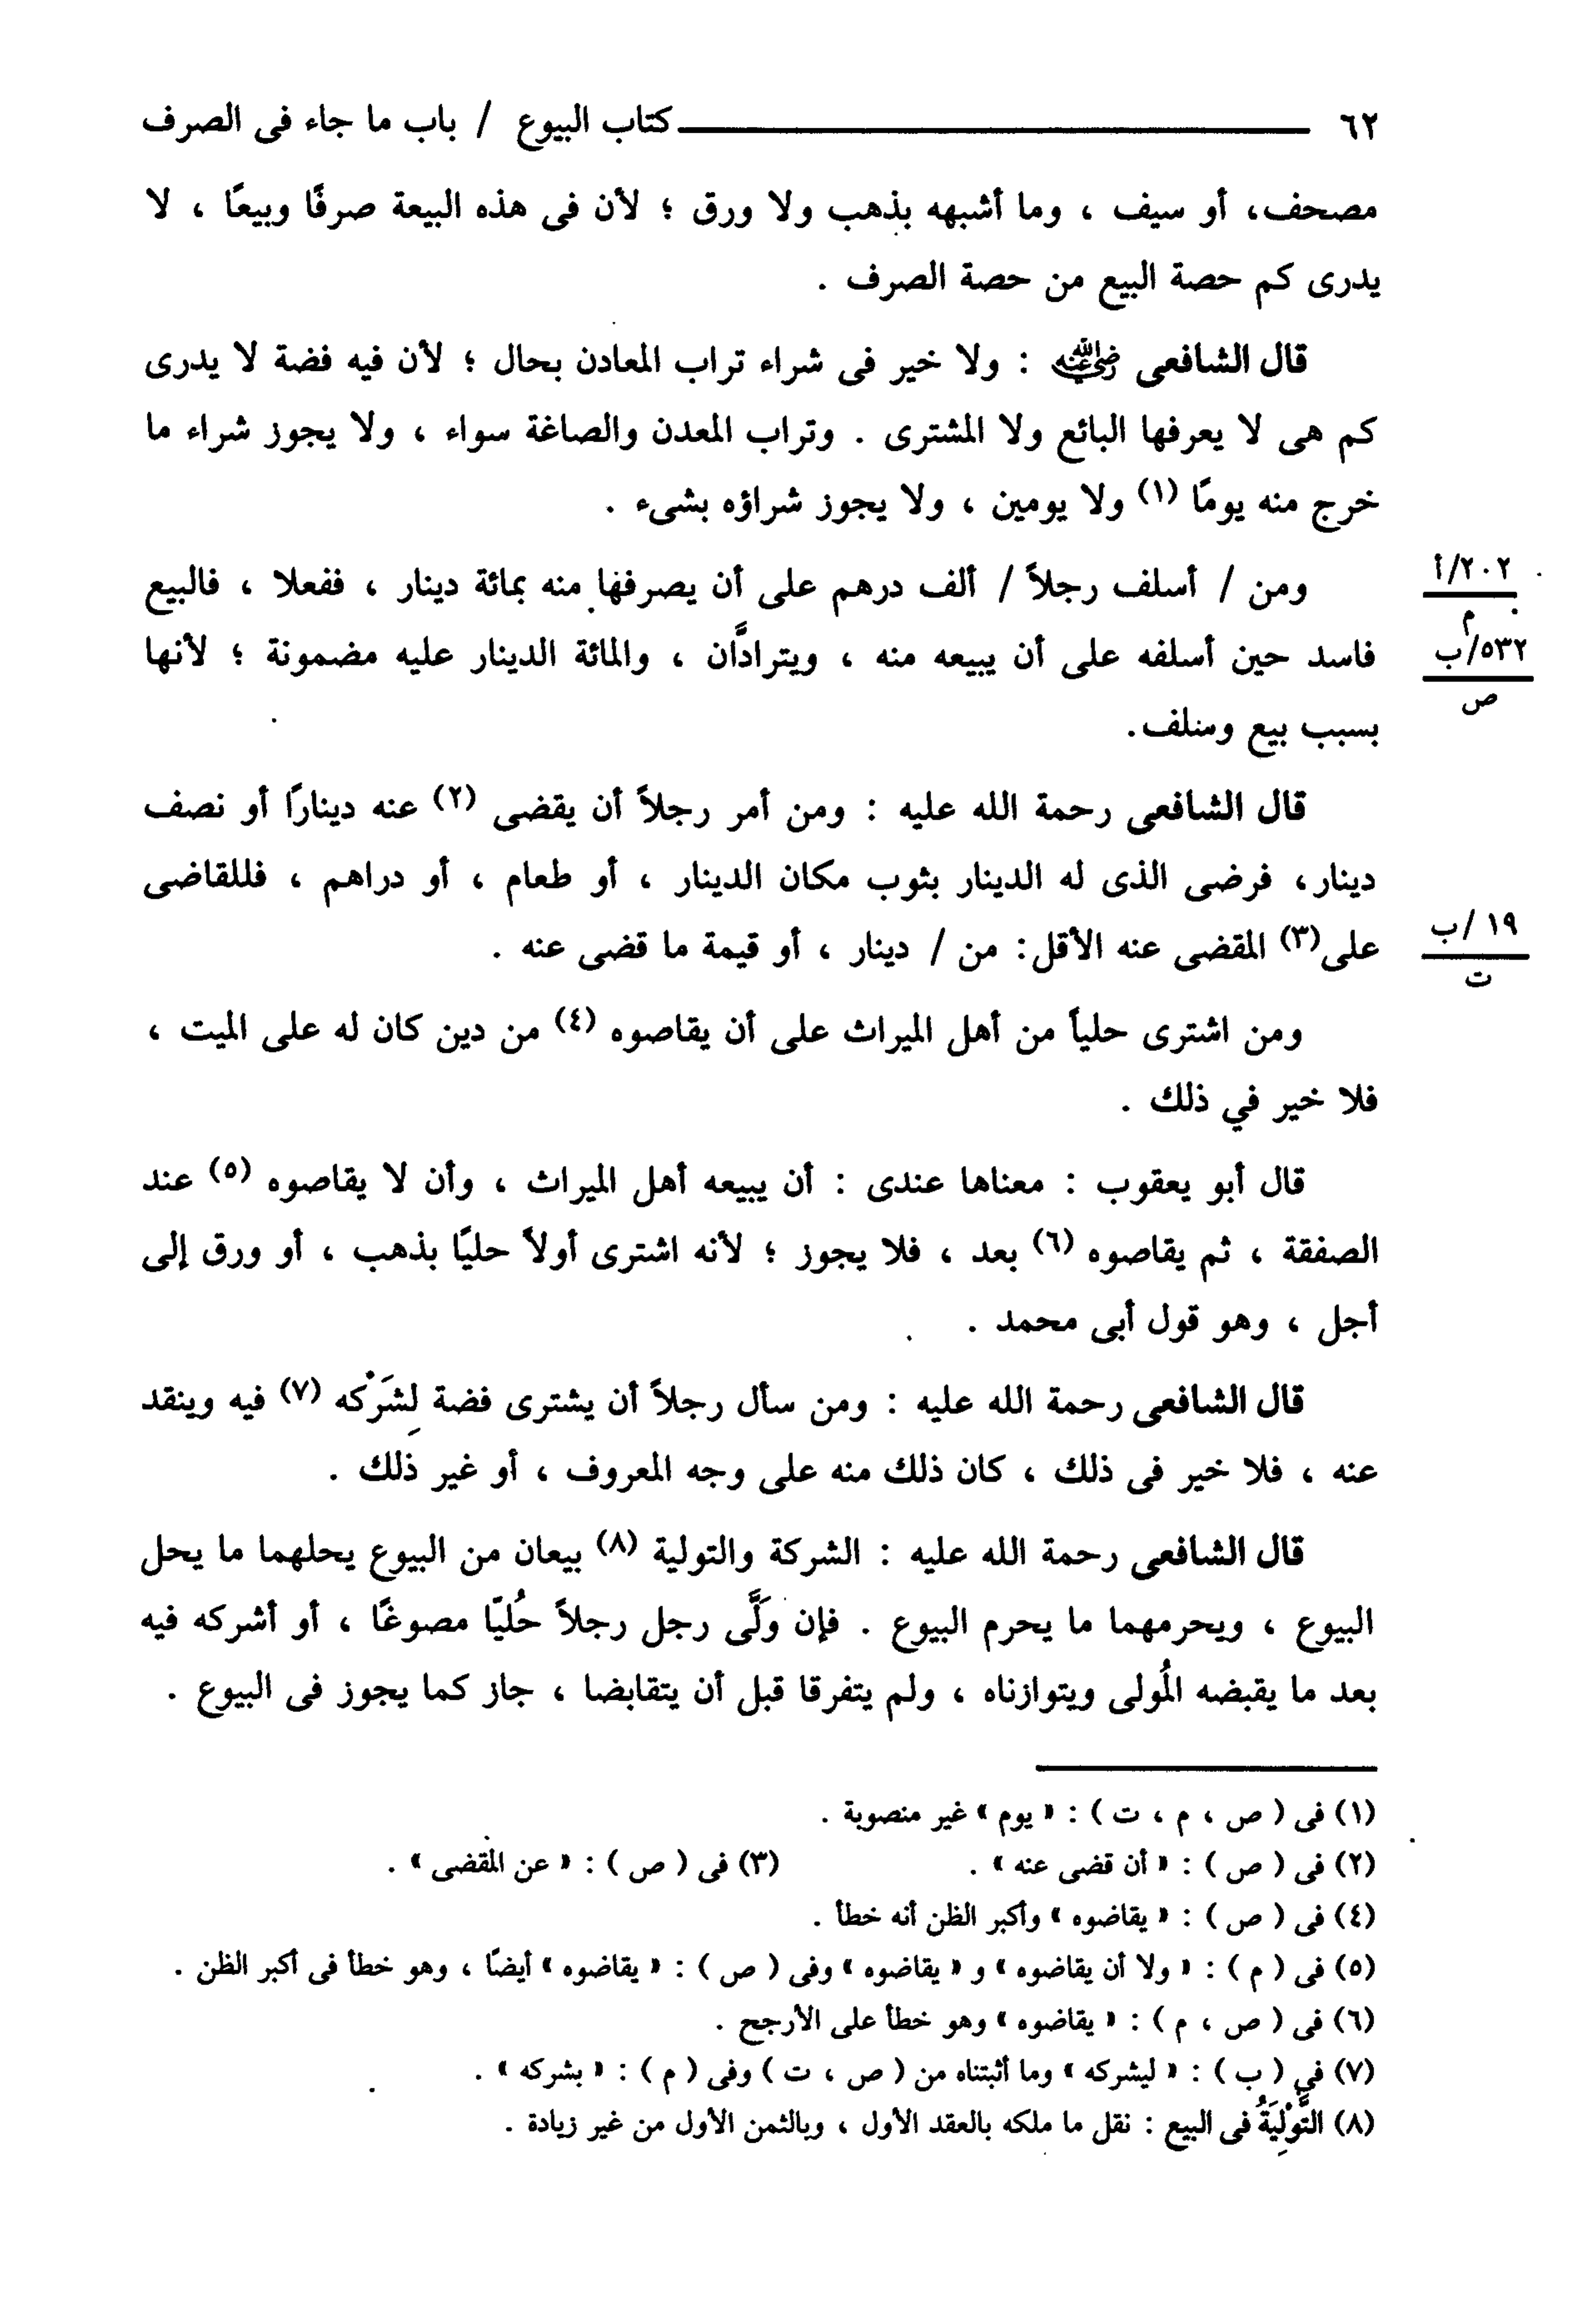 ٦٢ كتاب البيوع / باب ما جاء فى الصرف
مصحف، أو سيف ، وما أشبهه بذهب ولا ورق ؛ لأن فى هذه البيعة صرفًا وبيعًا ، لا
يدرى كم حصة البيع من حصة الصرف .
قال الشافعى رضي الله عنه : ولا خير فى شراء تراب المعادن بحال ؛ لأن فيه فضة لا يدرى
كم هى لا يعرفها البائع ولا المشترى . وتراب المعدن والصاغة سواء ، ولا يجوز شراء ما
خرج منه يومًا (١) ولا يومين ، ولا يجوز شراؤه بشىء .
ومن / أسلف رجلاً / ألف درهم على أن يصرفها منه بمائة دينار ، ففعلا ، فالبيع
٢٠٢/أ
م
فاسد حين أسلفه على أن يبيعه منه ، ويترادَّان ، والمائة الدينار عليه مضمونة ؛ لأنها
٥٣٢/ب
ص
بسبب بيع وسلف.
قال الشافعى رحمة الله عليه : ومن أمر رجلاً أن يقضى (٢) عنه دينارًا أو نصف
دينار، فرضى الذى له الدينار بثوب مكان الدينار ، أو طعام ، أو دراهم ، فللقاضى
على(٣) المقضى عنه الأقل: من / دينار ، أو قيمة ما قضى عنه .
١٩ /ب
ت
ومن اشترى حلياً من أهل الميراث على أن يقاصوه (٤) من دين كان له على الميت ،
فلا خير في ذلك .
قال أبو يعقوب : معناها عندى : أن يبيعه أهل الميراث ، وأن لا يقاصوه (٥) عند
الصفقة ، ثم يقاصوه (٦) بعد ، فلا يجوز ؛ لأنه اشترى أولاً حليًا بذهب ، أو ورق إلى
أجل ، وهو قول أبى محمد .
قال الشافعى رحمة الله عليه : ومن سأل رجلاً أن يشترى فضة لِشَرْكه (٧) فيه وينقد
عنه ، فلا خير فى ذلك ، كان ذلك منه على وجه المعروف ، أو غير ذلك .
قال الشافعى رحمة الله عليه : الشركة والتولية (٨) بيعان من البيوع يحلهما ما يحل
البيوع ، ويحرمهما ما يحرم البيوع . فإن وَلَّى رجل رجلاً حُليًا مصوغًا ، أو أشركه فيه
بعد ما يقبضه المُولى ويتوازناه ، ولم يتفرقا قبل أن يتقابضا ، جاز كما يجوز فى البيوع .
(١) فى ( ص ، م ، ت ) : « يوم » غير منصوبة .
(٢) فى ( ص ) : « أن قضى عنه » . (٣) فى ( ص ) : « عن المقضى » .
(٤) فى ( ص ) : « يقاضوه » وأكبر الظن أنه خطأ .
(٥) فى ( م ) : « ولا أن يقاضوه » و « يقاضوه » وفى ( ص ) : « يقاضوه » أيضًا ، وهو خطأ فى أكبر الظن .
(٦) فى ( ص ، م ) : « يقاضوه » وهو خطأ على الأرجح .
(٧) في ( ب ) : « ليشركه » وما أثبتناه من ( ص ، ت ) وفى ( م ) : « بشركه » .
(٨) التَّوْلِيَةُ فى البيع : نقل ما ملكه بالعقد الأول ، وبالثمن الأول من غير زيادة .